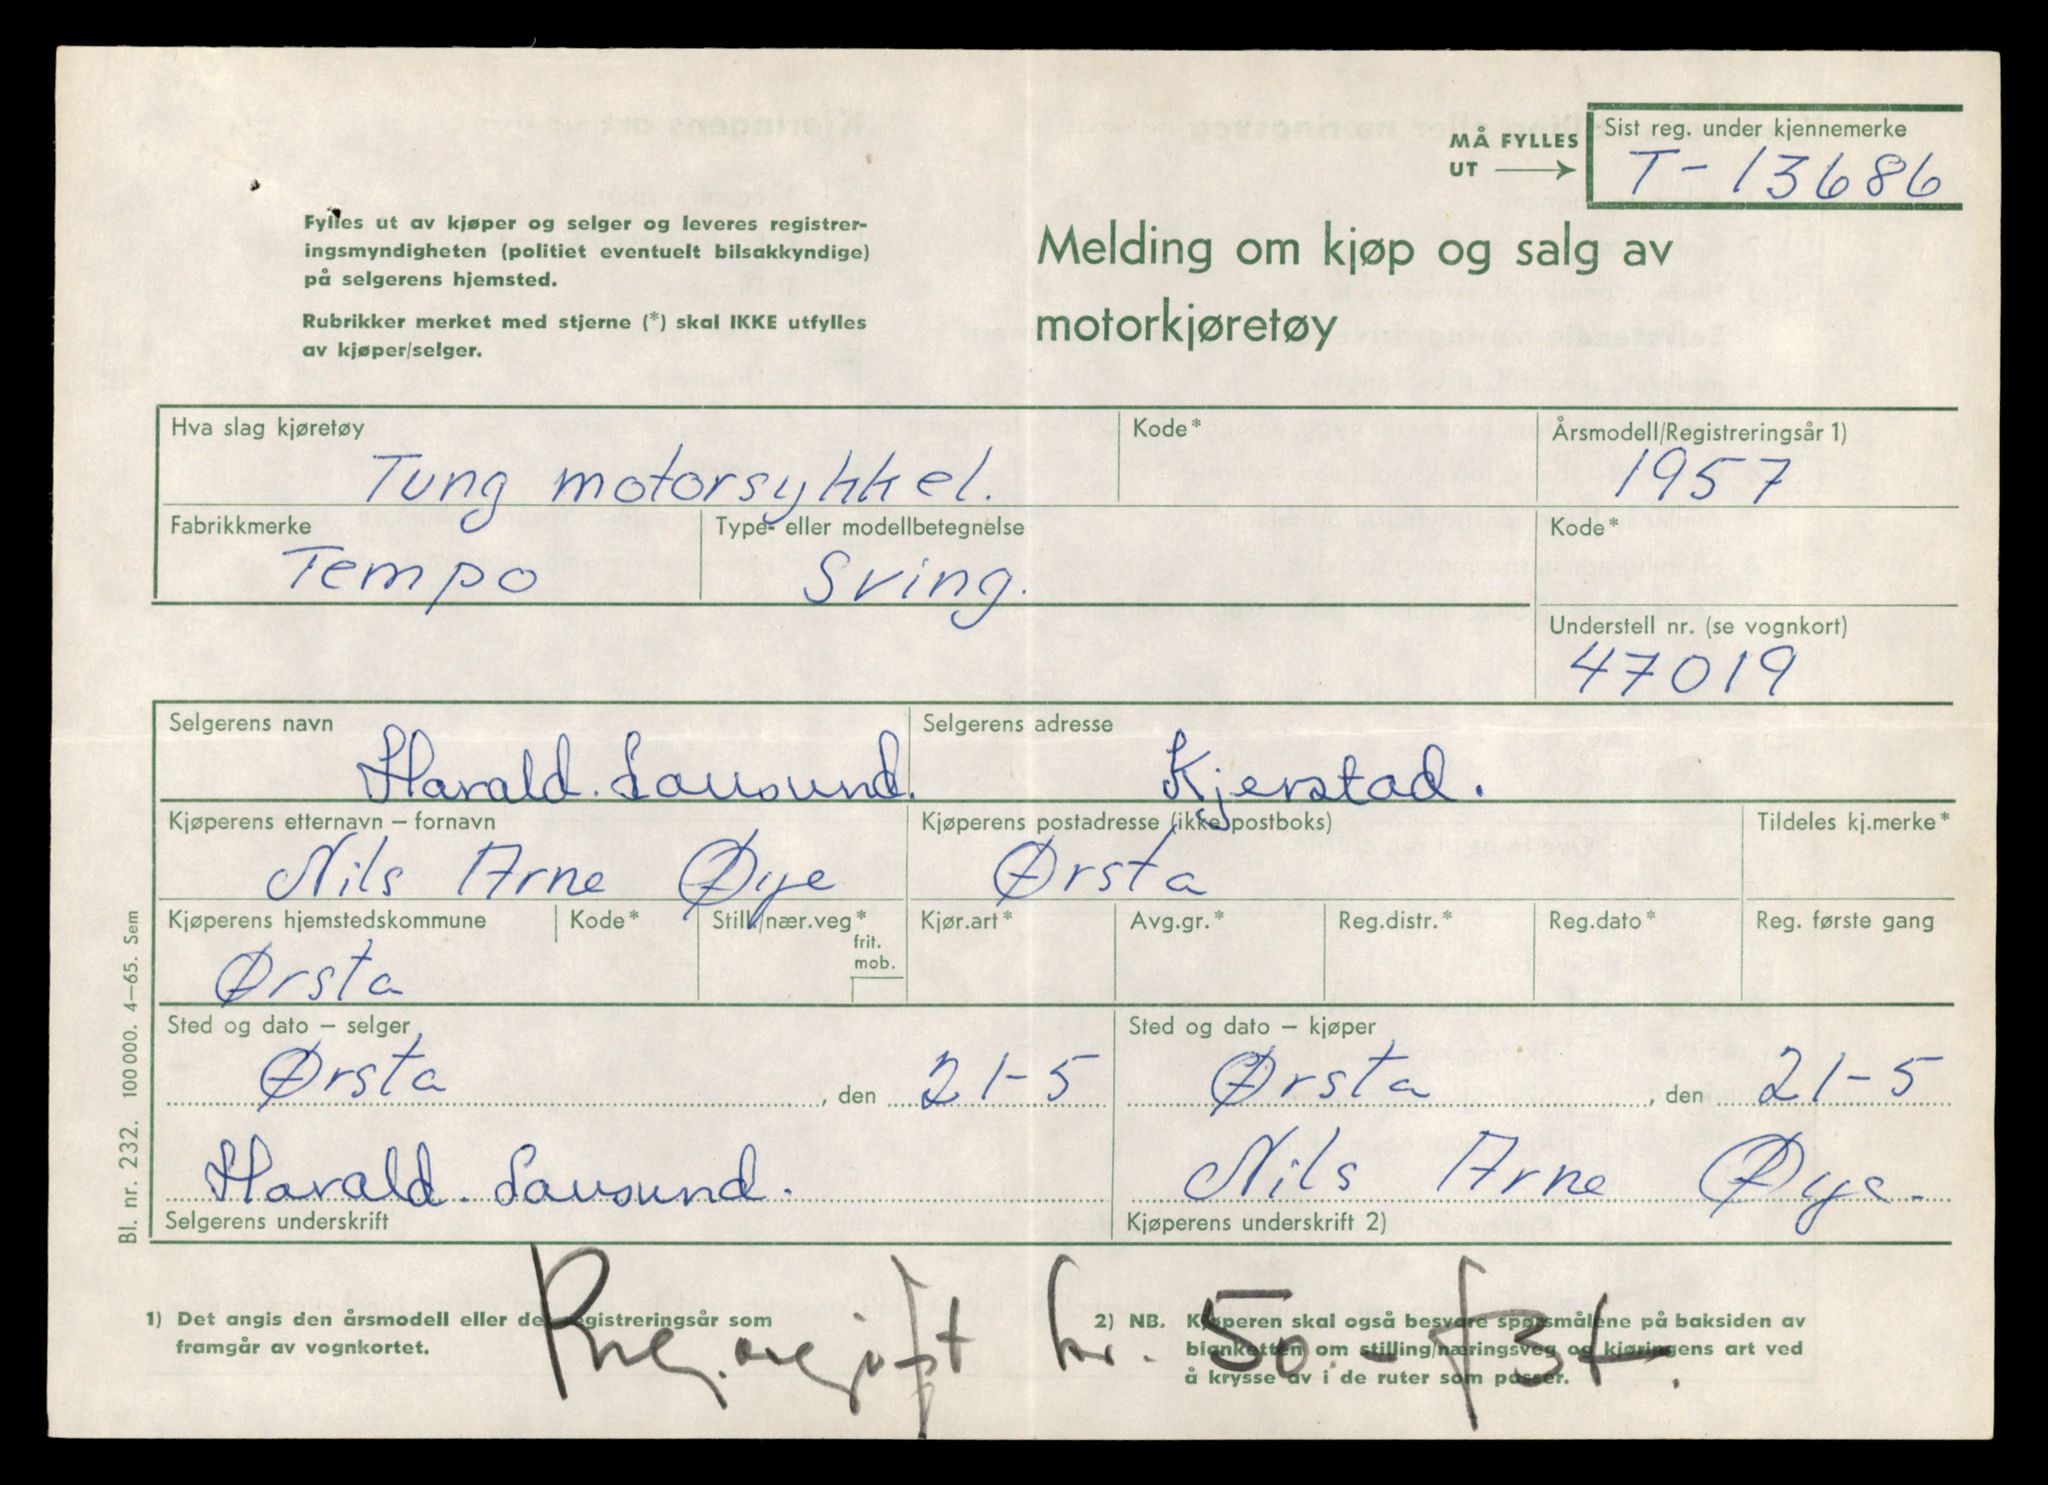 MÅ FYLLES
UT
Sist reg. under kjennemerke
T-13686
Fylles ut av kjøper og selger og leveres registrer-
ingsmyndigheten (politiet eventuelt bilsakkyndige)
på selgerens hjemsted.
Rubrikker merket med stjerne (*) skal IKKE utfylles
av kjøper/selger.
Melding om kjøp og salg av
motorkjøretøy
Hva slag kjøretøy
Tung motorsykkel.
Kode*
Årsmodell/Registreringsår 1)
1957
Fabrikkmerke
Tempo
Type- eller modellbetegnelse
Sving.
Kode*
Understell nr. (se vognkort)
47019
Selgerens navn
Harald. Lausund.
Selgerens adresse
Kjerstad.
Kjøperens etternavn – fornavn
Nils Arne Øye
Kjøperens postadresse (ikke postboks)
Ørsta
Tildeles kj.merke*
Kjøperens hjemstedskommune
Ørsta
Kode*
Still./nær.veg*
frit.
mob.
Kjør.art*
Avg.gr.*
Reg.distr.*
Reg.dato*
Reg. første gang
Sted og dato – selger
Ørsta , den 21-5
Sted og dato – kjøper
Ørsta , den 21-5
Harald. Lausund.
Selgerens underskrift
Nils Arne Øye.
Kjøperens underskrift 2)
Bl. nr. 232. 100 000. 4–65. Sem
1) Det angis den årsmodell eller det registreringsår som
framgår av vognkortet.
2) NB. Kjøperen skal også besvare spørsmålene på baksiden av
blanketten om stilling/næringsveg og kjøringens art ved
å krysse av i de ruter som passer.
kr. 50.-